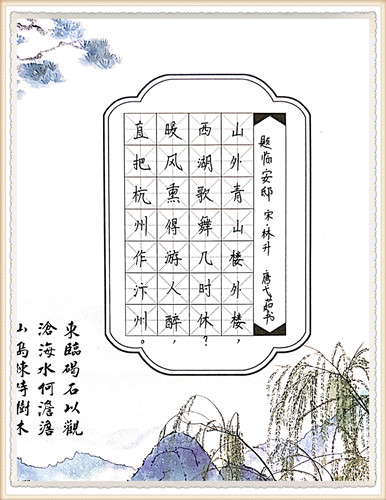 题临安邸 宋·林升
山外青山楼外楼，
西湖歌舞几时休？
暖风熏得游人醉，
直把杭州作汴州。
東臨碣石以觀
滄海水何澹澹
山島竦峙樹木